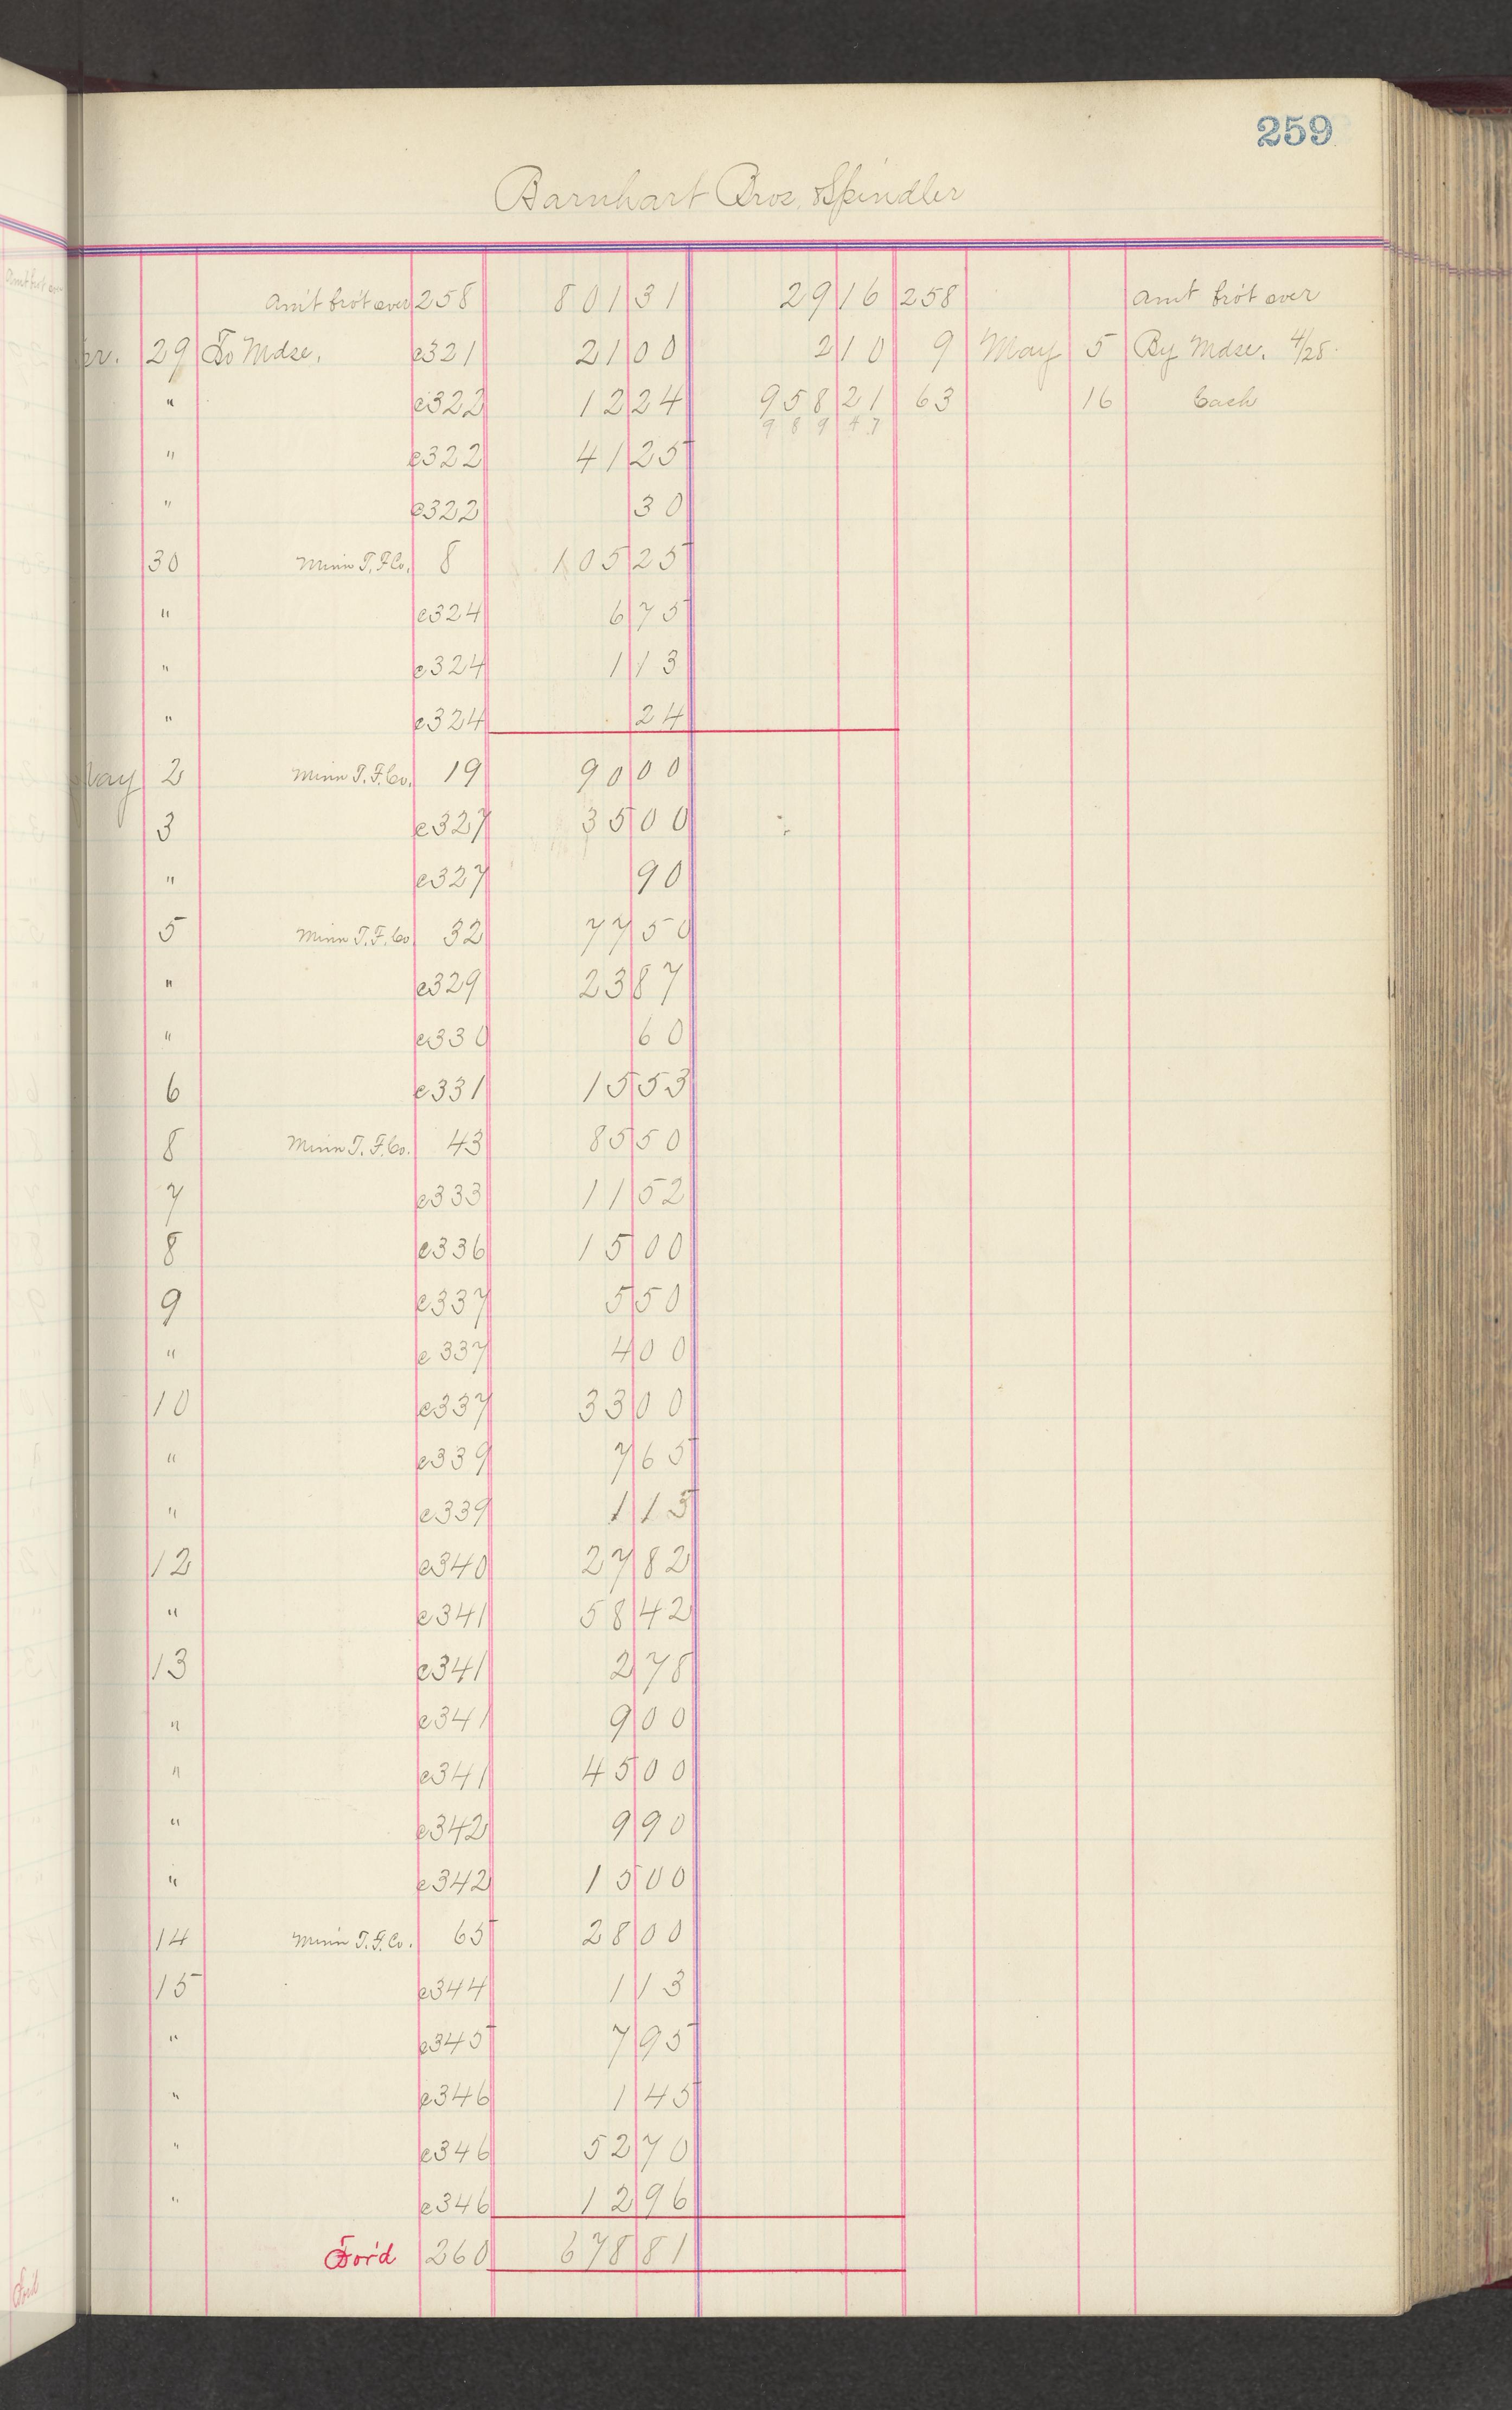 259
Barnhart Bros. & Spindler
Am't bro't over 258 801 31 29 16 258 Amt bro't over
29 To Mdse. e321 21 00 2 10 9 May 5 By Mdse. 4/28.
" e322 12 24 958 21 63 16 Cash
989 47
" e322 41 25
" e322 30
30 Minn T. F. Co. 8 105 25
" e324 6 75
" e324 1 13
" e324 24
May 2 Minn T. F. Co. 19 90 00
3 e327 35 00
" e327 90
5 Minn T. F. Co. 32 77 50
" e329 23 87
" e330 60
6 e331 15 53
8 Minn T. F. Co. 43 85 50
7 e333 11 52
8 e336 15 00
9 e337 5 50
" e337 4 00
10 e337 33 00
" e339 7 65
" e339 1 15
12 e340 27 82
" e341 58 42
13 e341 2 78
" e341 9 00
" e341 45 00
" e342 9 90
" e342 15 00
14 Minn T. F. Co. 65 28 00
15 e344 1 13
" e345 7 95
" e346 1 45
" e346 52 70
" e346 12 96
For'd 260 678 81